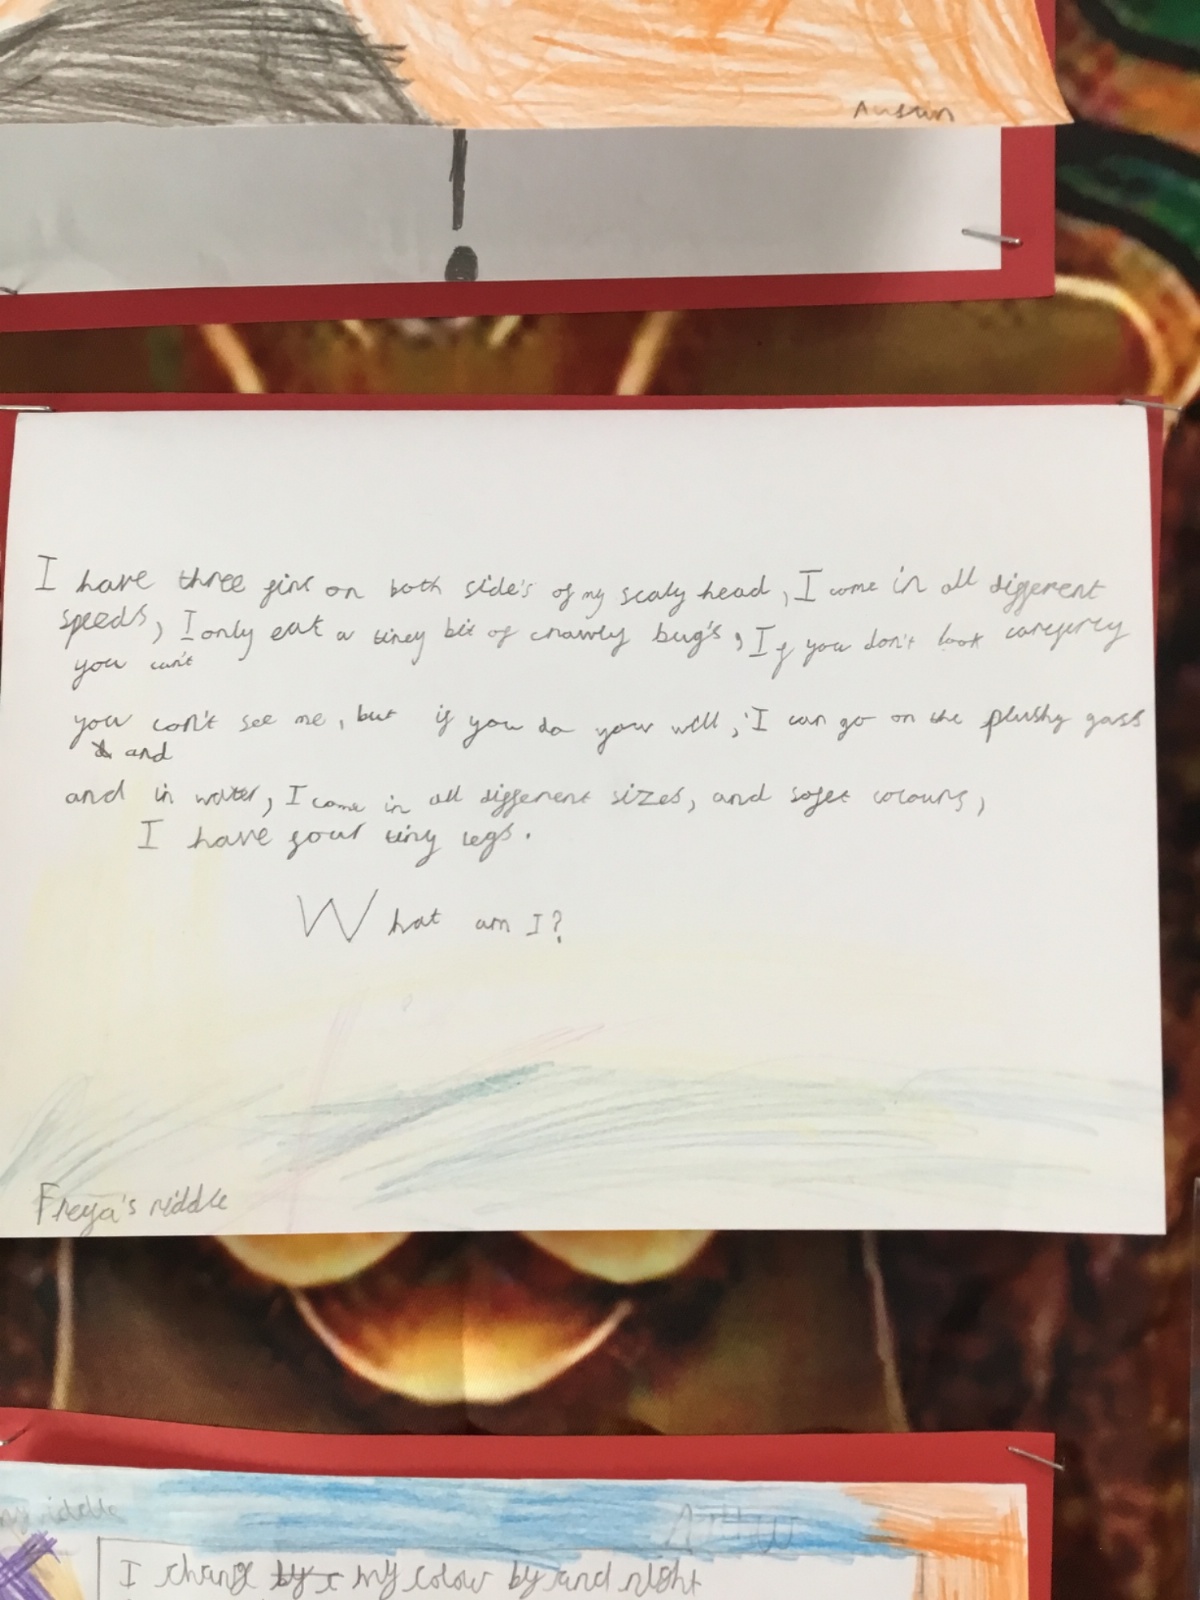 Austin
!
I have three fins on both side's of my scaly head, I come in all different
speeds, I only eat a tiney bit of crawly bug's, If you don't look carefircy
you can't
you can't see me, but if you do you will, I can go on the plushy gass
and
and in water, I come in all different sizes, and sofet colours,
I have four tiny legs.
What am I?
Freya's riddle
my riddle
I change by my colour by and night